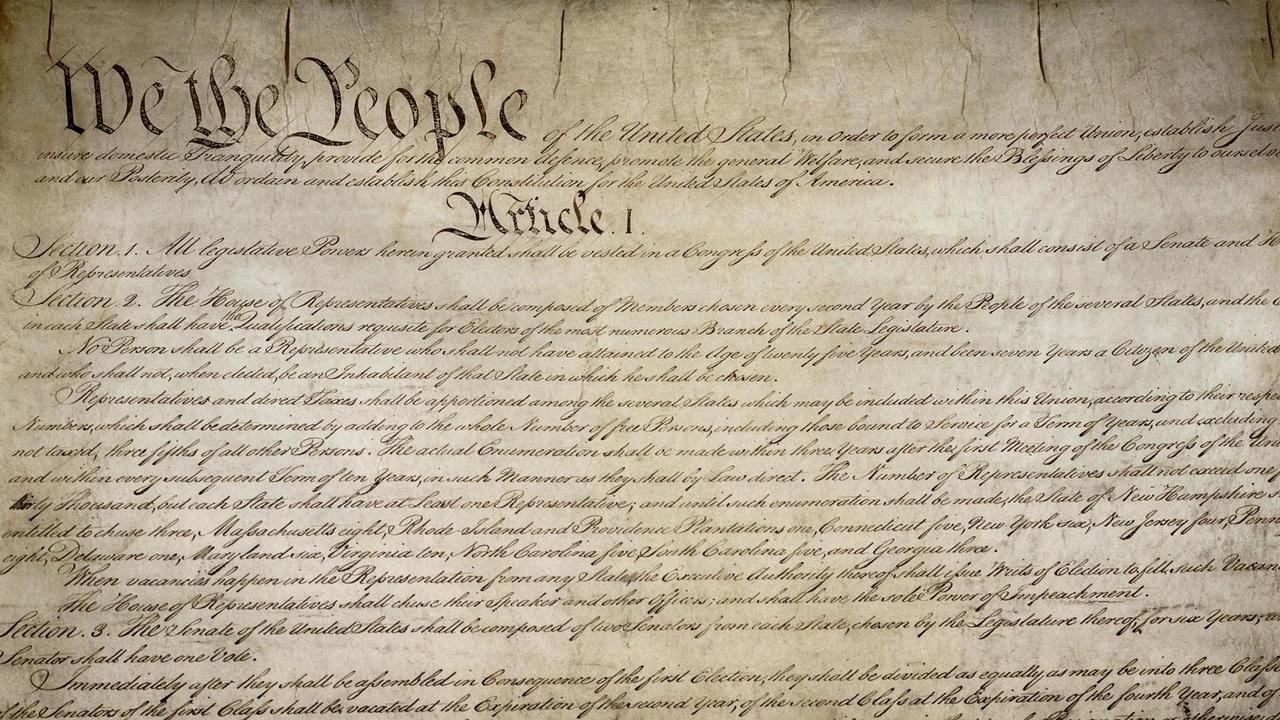 We the People of the United States, in Order to form a more perfect Union, establish Just
insure domestic Tranquility, provide for the common defence, promote the general Welfare, and secure the Blessings of Liberty to ourselve
and our Posterity, do ordain and establish this Constitution for the United States of America.
Article. I.
Section. 1. All legislative Powers herein granted shall be vested in a Congress of the United States, which shall consist of a Senate and Ho
of Representatives
Section. 2. The House of Representatives shall be composed of Members chosen every second Year by the People of the several States, and the
in each State shall have the Qualifications requisite for Electors of the most numerous Branch of the State Legislature.
No Person shall be a Representative who shall not have attained to the Age of twenty five Years, and been seven Years a Citizen of the United
and who shall not, when elected, be an Inhabitant of that State in which he shall be chosen.
Representatives and direct Taxes shall be apportioned among the several States which may be included within this Union, according to their respe
Numbers, which shall be determined by adding to the whole Number of free Persons, including those bound to Service for a Term of Years, and excluding
not taxed, three fifths of all other Persons. The actual Enumeration shall be made within three Years after the first Meeting of the Congress of the Uni
and within every subsequent Term of ten Years, in such Manner as they shall by Law direct. The Number of Representatives shall not exceed one
thirty Thousand, but each State shall have at Least one Representative; and until such enumeration shall be made, the State of New Hampshire s
entitled to chuse three, Massachusetts eight, Rhode Island and Providence Plantations one, Connecticut five, New York six, New Jersey four, Penn
eight, Delaware one, Maryland six, Virginia ten, North Carolina five, South Carolina five, and Georgia three.
When vacancies happen in the Representation from any State, the Executive Authority thereof shall issue Writs of Election to fill such Vacan
The House of Representatives shall chuse their Speaker and other Officers; and shall have the sole Power of Impeachment.
Section. 3. The Senate of the United States shall be composed of two Senators from each State, chosen by the Legislature thereof, for six Years; a
Senator shall have one Vote.
Immediately after they shall be assembled in Consequence of the first Election, they shall be divided as equally as may be into three Classe
of the Senators of the first Class shall be vacated at the Expiration of the second Year, of the second Class at the Expiration of the fourth Year, and of